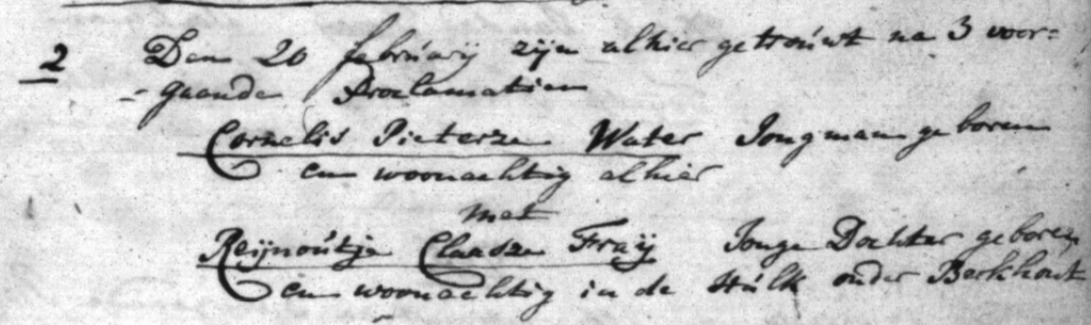 2 Den 20 februarij zijn alhier getrouwt na 3 voor=
=gaande Proclamatien
Cornelis Pieterze Water Jongman geboren
en woonachtig alhier
met
Reijnoutje Claasze Fraij Jonge Dochter geboren
en woonachtig in de Hulk onder Berkhout